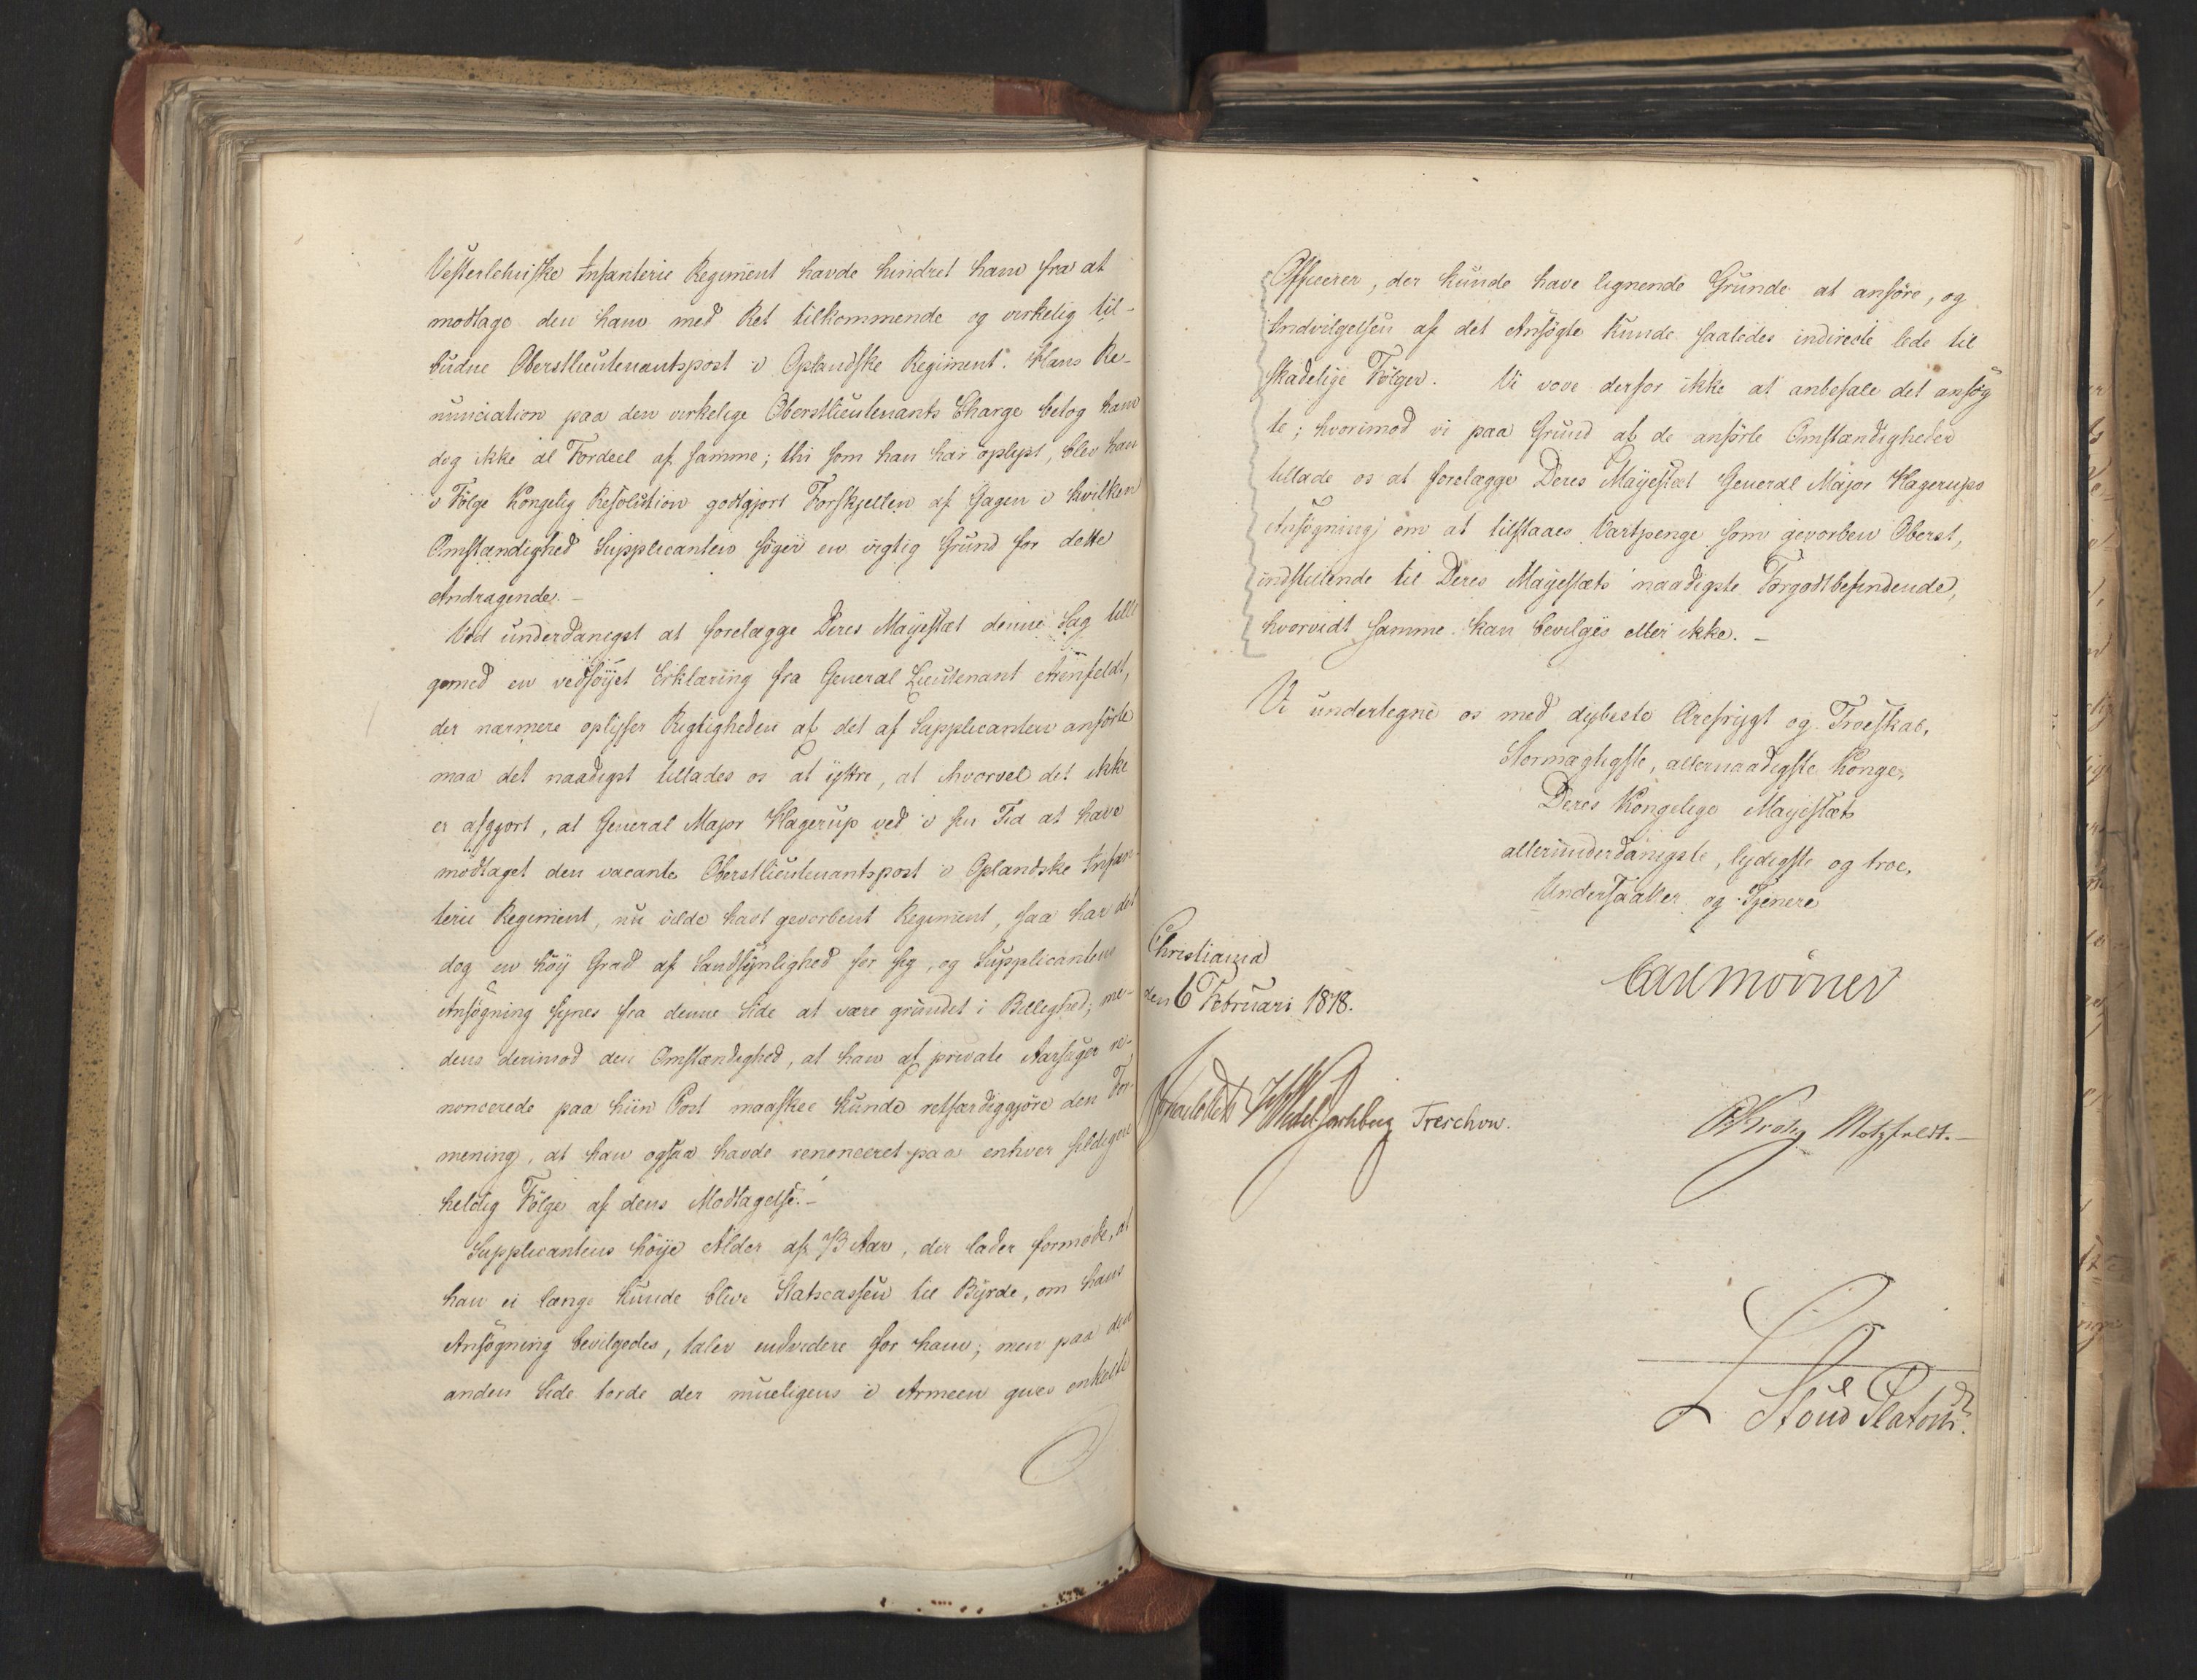 Vesterlehnske Infanterie Regiment havde hindret ham fra at
modtage den ham med Ret tilkommende og virkelig til-
budne Oberstlieutenantspost i Oplandske Regiment. Hans Re-
nunciation paa den virkelige Oberstlieutenants Charge betog ham
dog ikke al Fordeel af samme; thi som han har oplyst, blev han
i Følge Kongelig Resolution godtgjort Forskjellen af Gagen i hvilken
Omstændighed Supplicanten søger en vigtig Grund for dette
Andragende. -
Ved underdanigst at forelægge Deres Mayestæt denne Sag tilli-
gemed en vedføyet Erklæring fra General Lieutenant Arenfeldt,
der nærmere oplyser Rigtigheden af det af Supplicanten anførte
maa det naadigst tillades os at yttre, at hvorvel det ikke
er afgjort, at General Major Klagerup ved i sin Tid at have
modtaget den vacante Oberstlieutenantspost i Oplandske Infan-
terie Regiment, nu vilde havt gevorbent Regiment, saa har det
dog en høy Grad af Sandsynlighed for sig, og Supplicantens
Ansøgning synes fra denne Side at være grundet i Billighed; me-
dens derimod den Omstændighed, at han af private Aarsager re-
noncerede paa hiin Post maaskee kunde retfærdiggjøre den For-
mening, at han ogsaa havde renonceret paa enhver sildigere
heldig Følge af dens Modtagelse. -
Supplicantens høye Alder af 73 Aar, der lader formode, at
han ei længe kunde blive Statscassen til Byrde, om hans
Ansøgning bevilgedes, taler endvidere for ham; men paa den
anden Side torde der mueligens i Armeen gives enkelte
Officerer, der kunde have lignende Grunde at anføre, og
Indvilgelsen af det Ansøgte kunde saaledes indirecte lede til
skadelige Følger. Vi vove derfor ikke at anbefale det ansøg
te; hvorimod vi paa Grund af de anførte Omstændigheder
tillade os at forelægge Deres Mayestæt General Major Klagerups
Ansøgning om at tilstaaes Vartpenge som gevorben Oberst,
indstillende til Deres Mayestæts naadigste Forgodtbefindende,
hvorvidt samme kan bevilges eller ikke. -
Vi undertegne os med dybeste Ærefrygt og Troeskab,
Stormægtigste, allernaadigste Konge,
Deres Kongelige Mayestæts
allerunderdanigste, lydigste og troe,
Undersaatter og Tjenere
Christiania
den 6 Februari 1818.
Carl Mörner
Wedel Jarlsberg Treschow.
Krohg Motzfeldt. -